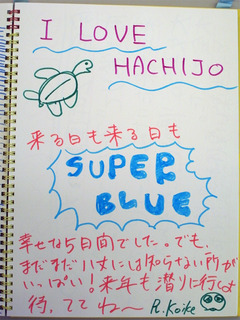 I LOVE
HACHIJO
来る日も来る日も
SUPER
BLUE
幸せな5日間でした。でも、
まだまだ八丈には知らない所が
いっぱい!来年も潜りに行くょ
待っててね〜 R.Koike